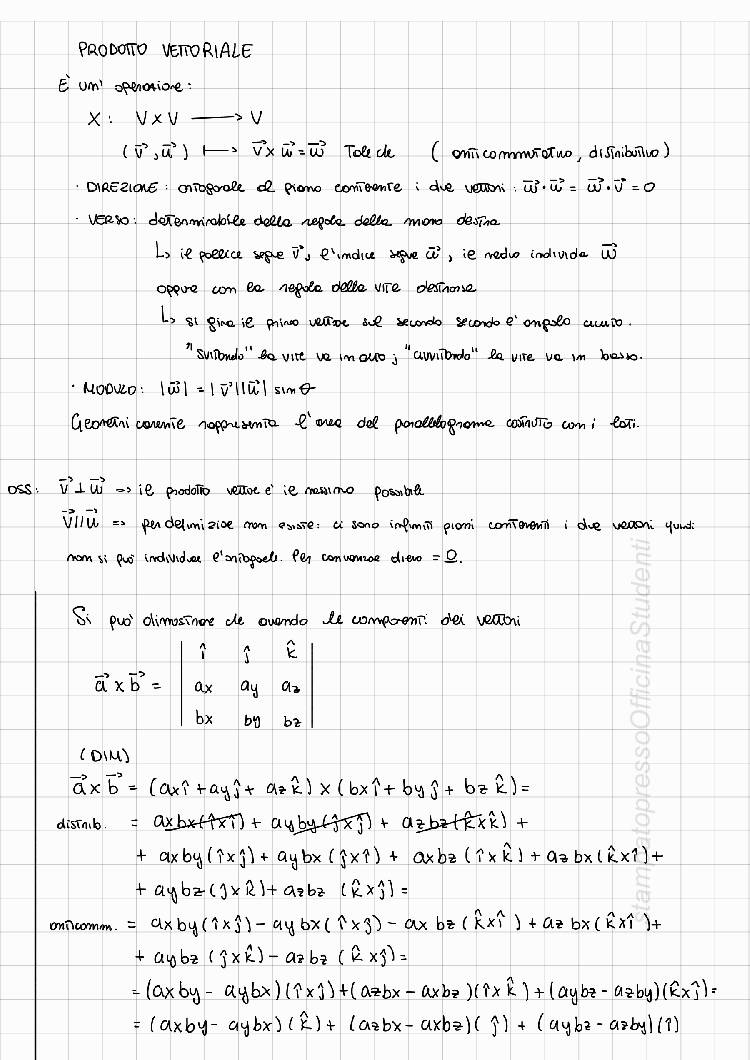 PRODOTTO VETTORIALE
È un' operazione:
X: V x V ⟶ V
(v⃗, u⃗) ⟼ v⃗ x u⃗ = w⃗ Tale che (anticommutativo, distributivo)
· DIREZIONE: ortogonale al piano contenente i due vettori: w⃗ · u⃗ = w⃗ · v⃗ = 0
· VERSO: determinabile dalla regola della mano destra
↳ il pollice segue v⃗, l'indice segue u⃗, il medio individua w⃗
oppure con la regola della vite destrorsa
↳ si gira il primo vettore sul secondo secondo l'angolo acuto.
"svitando" la vite va in alto; "avvitando" la vite va in basso.
· MODULO: |w⃗| = |v⃗||u⃗| sin θ
Geometricamente rappresenta l'area del parallelogramma costruito con i lati.
OSS: v⃗ ⊥ u⃗ => il prodotto vettore è il massimo possibile
v⃗ // u⃗ => per definizione non esiste: ci sono infiniti piani contenenti i due vettori quindi
non si può individuare l'ortogonale. Per convenzione diremo = 0.
Si può dimostrare che avendo le componenti dei vettori
î ĵ k̂
a⃗ x b⃗ = ax ay az
bx by bz
(DIM)
a⃗ x b⃗ = (ax î + ay ĵ + az k̂) x (bx î + by ĵ + bz k̂) =
distrib. = axbx(î x î) + ayby(ĵ x ĵ) + azbz(k̂ x k̂) +
+ axby(î x ĵ) + aybx(ĵ x î) + axbz(î x k̂) + azbx(k̂ x î) +
+ aybz(ĵ x k̂) + azbz(k̂ x ĵ) =
anticomm. = axby(î x ĵ) - aybx(î x ĵ) - axbz(k̂ x î) + azbx(k̂ x î) +
+ aybz(ĵ x k̂) - azbz(k̂ x ĵ) =
= (axby - aybx)(î x ĵ) + (azbx - axbz)(î x k̂) + (aybz - azby)(k̂ x ĵ) =
= (axby - aybx)(k̂) + (azbx - axbz)(ĵ) + (aybz - azby)(î)
stampatopressoOfficinaStudenti